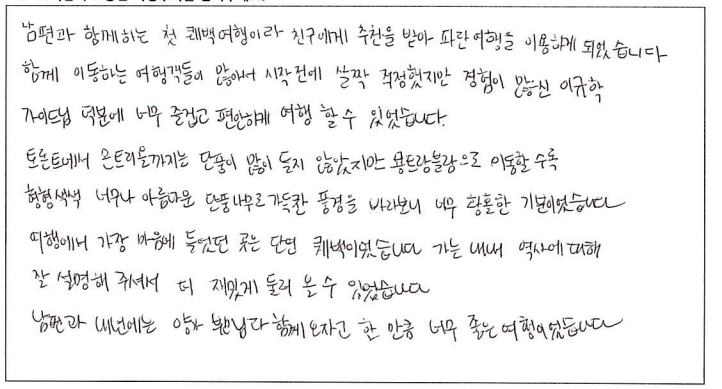 남편과 함께하는 첫 퀘백여행이라 친구에게 추천을 받아 파란여행을 이용하게 되었습니다
함께 이동하는 여행객들이 많아서 시작전에 살짝 걱정했지만 경험이 많으신 이규학
가이드님 덕분에 너무 즐겁고 편안하게 여행 할 수 있었습니다.
토론토에서 몬트리올까지는 단풍이 많이 들지 않았지만 몽트랑블랑으로 이동할수록
형형색색 너무나 아름다운 단풍나무로 가득찬 풍경을 바라보니 너무 황홀한 기분이었습니다
여행에서 가장 마음에 들었던 곳은 단연 퀘백이었습니다 가는 내내 역사에 대해
잘 설명해 주셔서 더 재밌게 둘러 볼 수 있었습니다
남편과 내년에는 양가 함께 오자고 한 만큼 너무 좋은 여행이었습니다